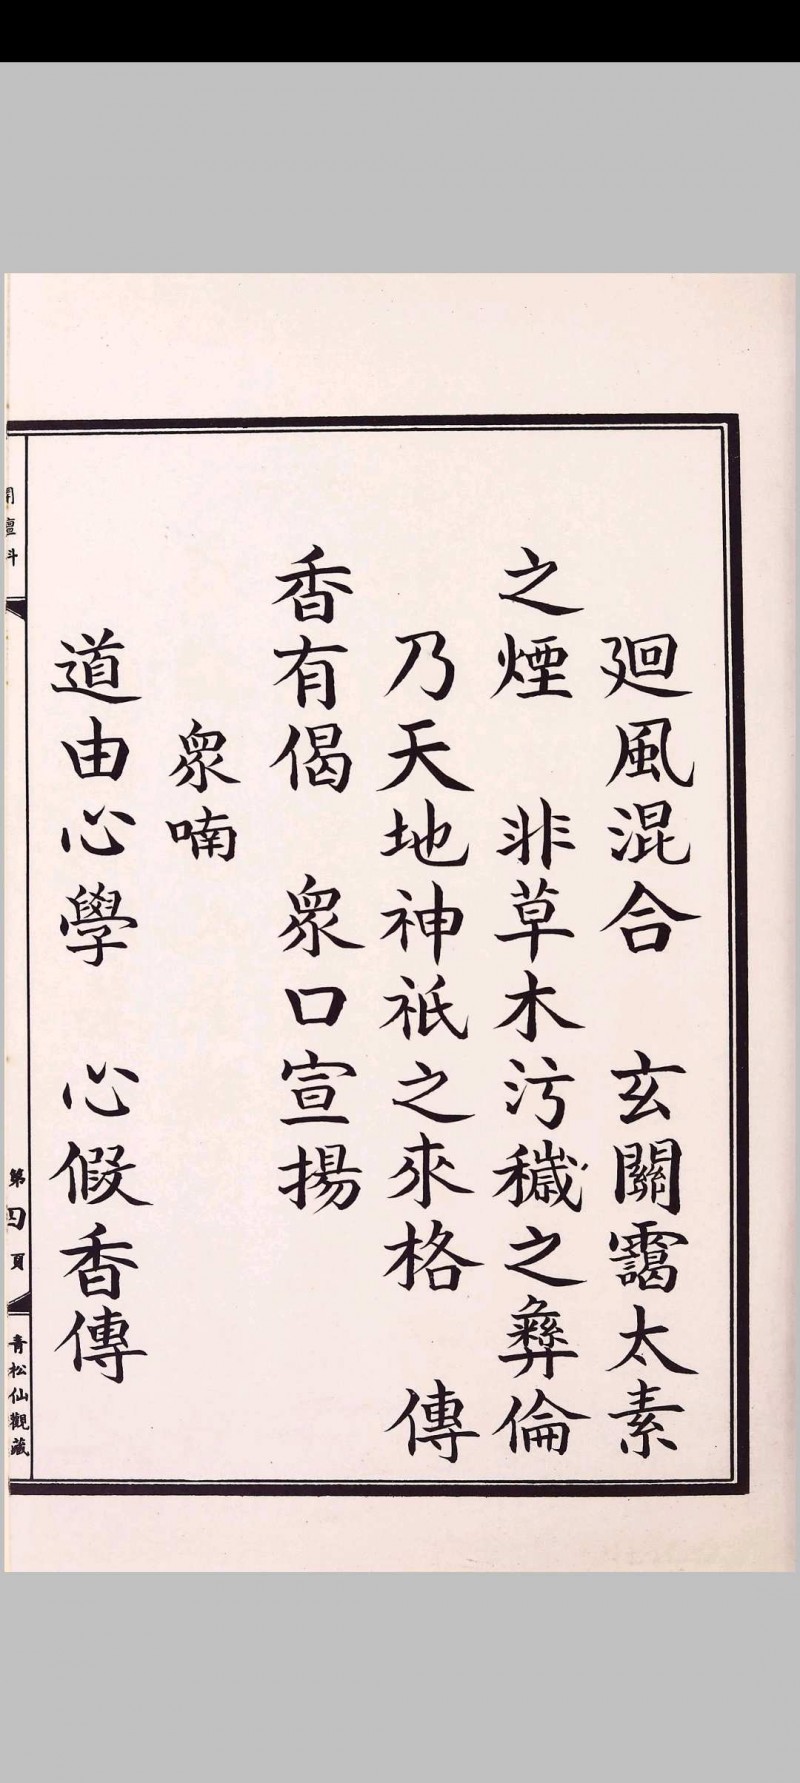 廻風混合　玄關靄太素
之煙　非草木污穢之彞倫
乃天地神祇之來格　傳
香有偈　衆口宣揚
衆喃
道由心學　心假香傳
開壇科
第四頁
青松仙觀藏